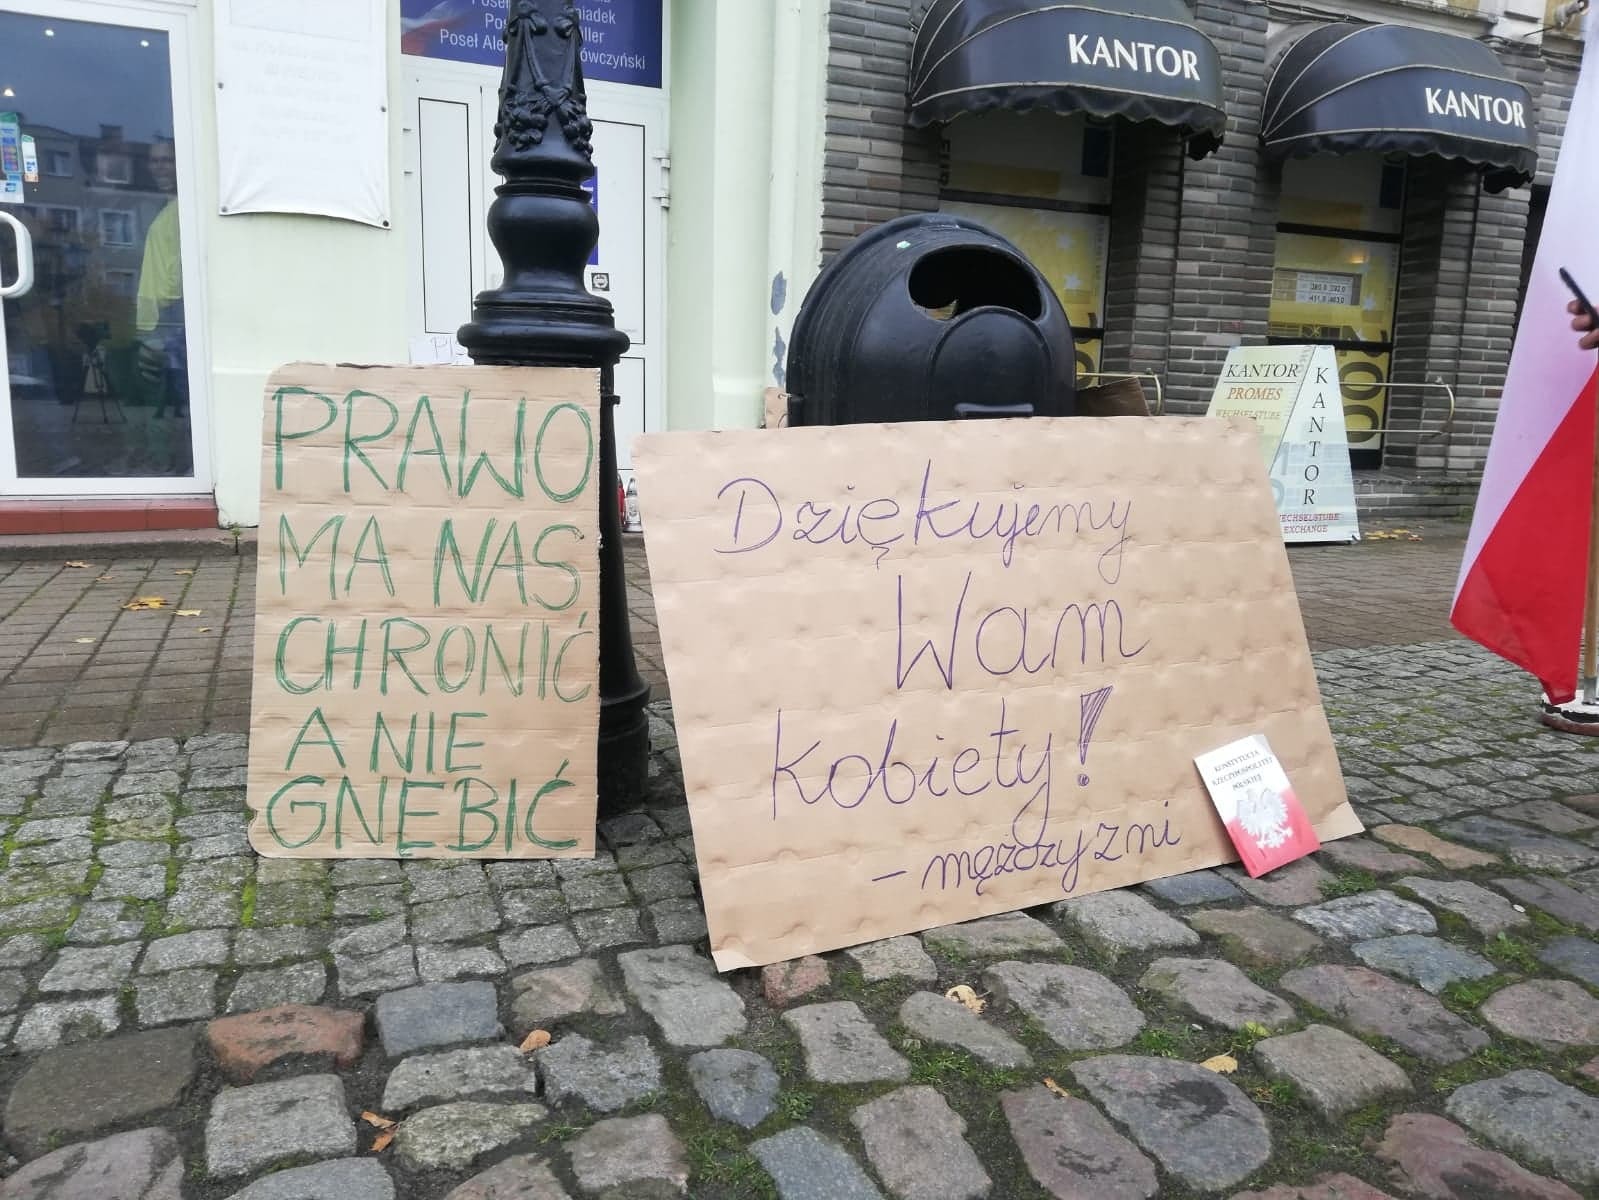 Poseł Ale
ówczyński
KANTOR
KANTOR
KANTOR
PROMES
WECHSELSTUBE
KANTOR
WECHSELSTUBE
EXCHANGE
PRAWO
MA NAS
CHRONIĆ
A NIE
GNĘBIĆ
Dziękujemy
Wam
kobiety!
- mężczyzni
KONSTYTUCJA
RZECZYPOSPOLITEJ
POLSKIEJ